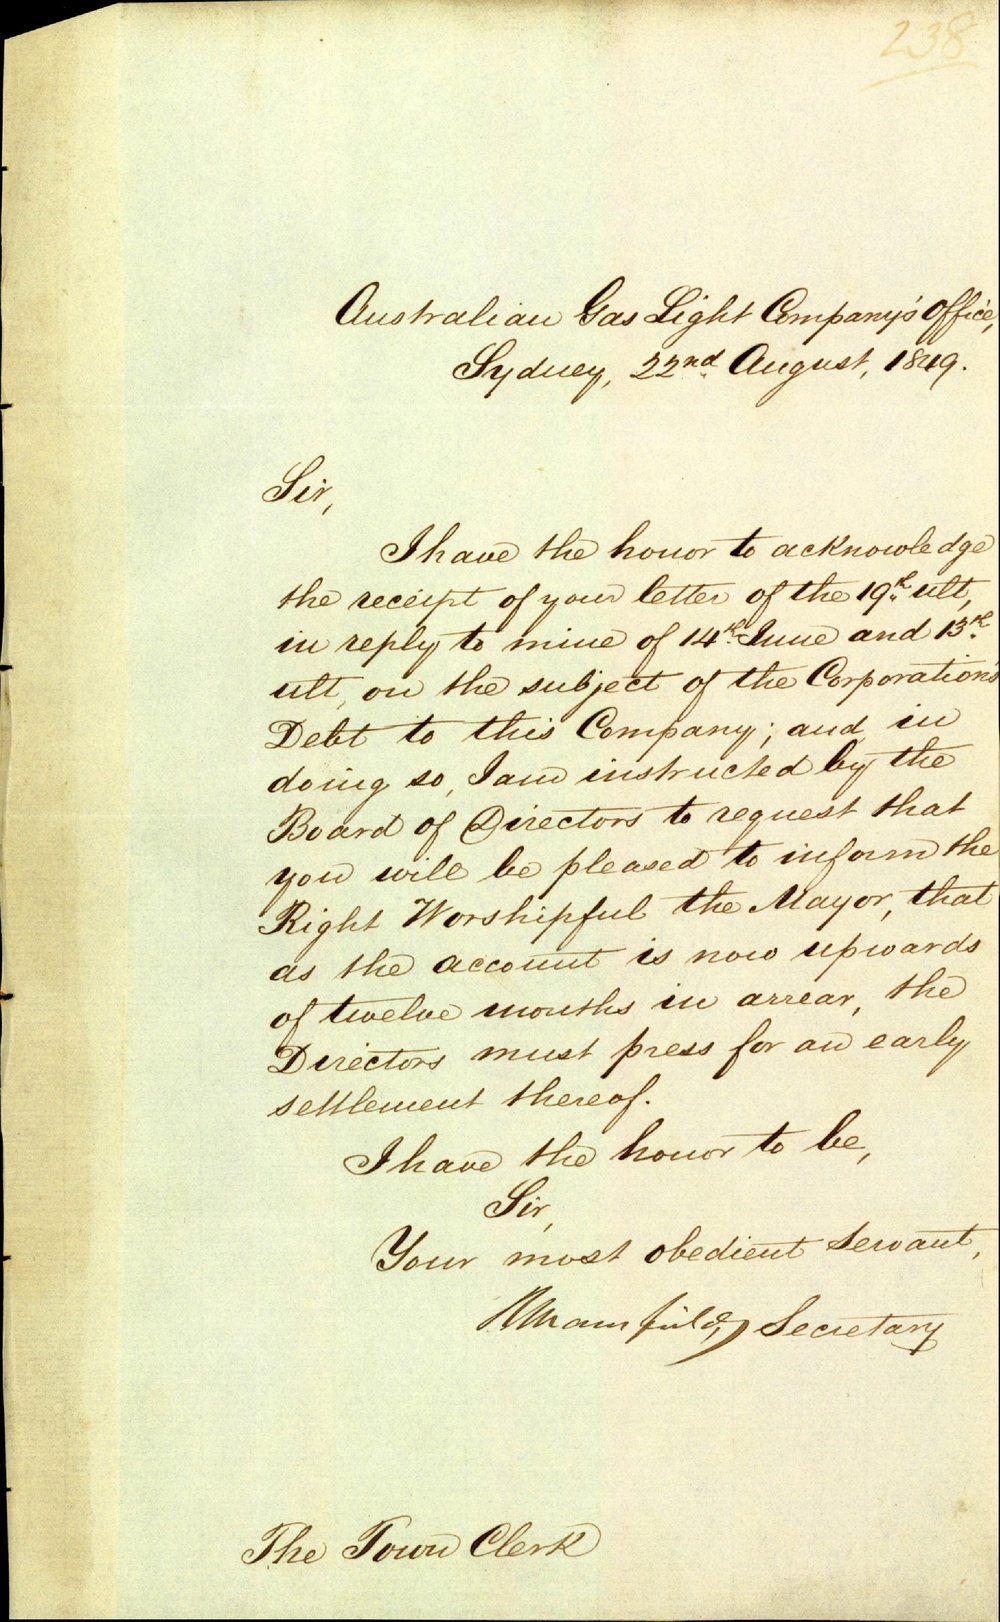 238
Australian Gas Light Company's Office,
Sydney, 22nd August, 1849.
Sir,
I have the honor to acknowledge
the receipt of your letter of the 19th ult,
in reply to mine of 14th June and 13th
ult, on the subject of the Corporation's
Debt to this Company; and, in
doing so, I am instructed by the
Board of Directors to request that
you will be pleased to inform the
Right Worshipful the Mayor, that
as the account is now upwards
of twelve months in arrear, the
Directors must press for an early
settlement thereof.
I have the honor to be,
Sir,
Your most obedient Servant,
R Mansfield, Secretary
The Town Clerk